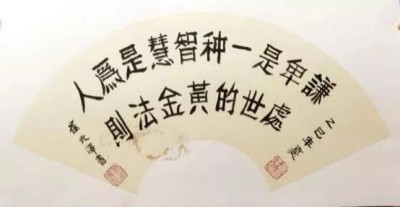 謙卑是一种智慧是爲人
處世的黃金法則
乙巳年夏